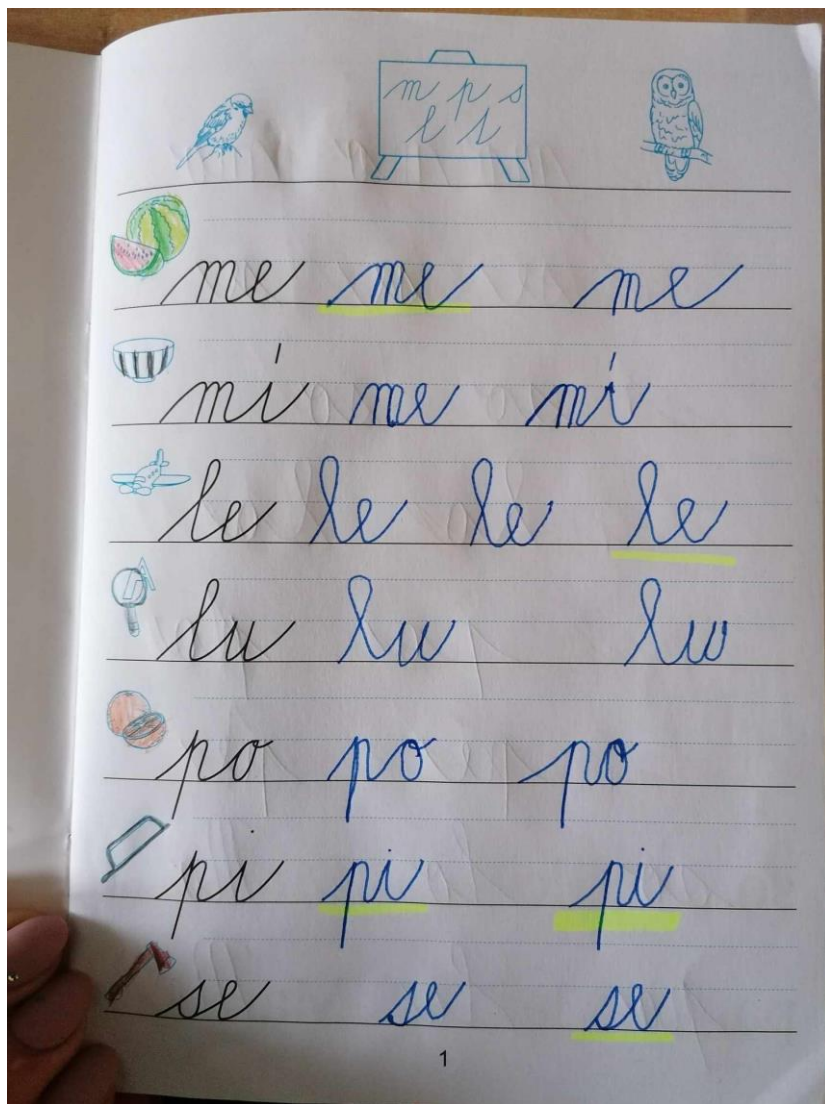 m p s
l t
me me me
mí me mí
le le le le
lu lu lu
po po po
pi pi pi
se se se
1